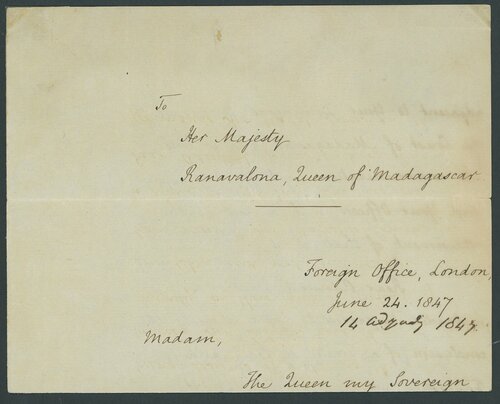 To
Her Majesty
Ranavalona, Queen of Madagascar.
Foreign Office, London,
June 24. 1847
14 1847.
Madam,
The Queen my Sovereign